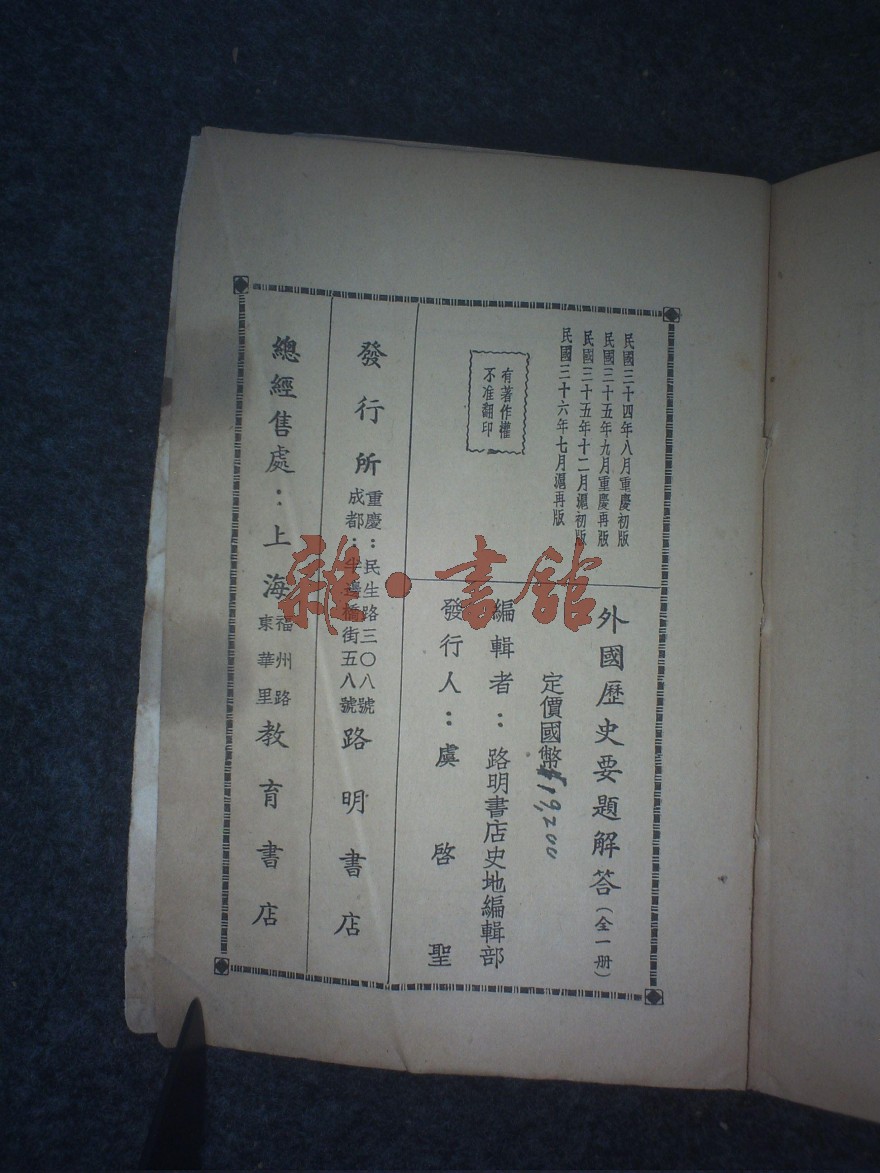 民國三十四年八月重慶初版
民國三十五年九月重慶再版
民國三十五年十二月滬初版
民國三十六年七月滬再版
有著作權
不准翻印
外國歷史要題解答（全一册）
定價國幣19,200
編輯者：路明書店史地編輯部
發行人：虞啓聖
發行所
重慶：民生路三〇八號
成都：半邊橋街五八號
路明書店
總經售處：上海
福州路
東華里
教育書店
雜·書館